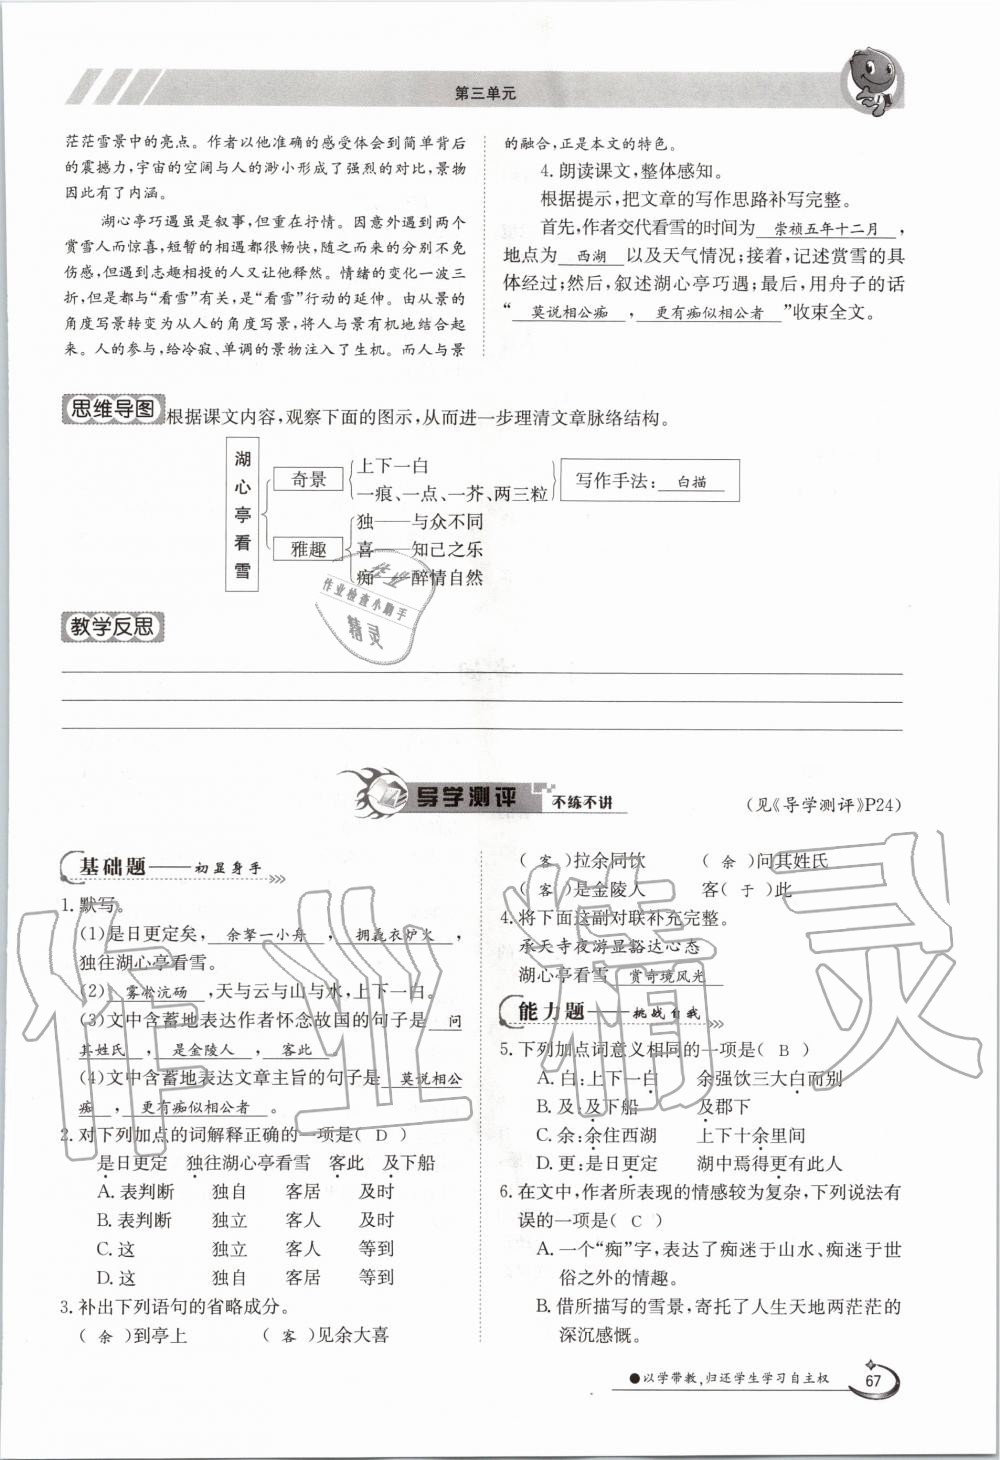 第三单元
茫茫雪景中的亮点。作者以他准确的感受体会到简单背后
的震撼力,宇宙的空阔与人的渺小形成了强烈的对比,景物
因此有了内涵。
湖心亭巧遇虽是叙事,但重在抒情。因意外遇到两个
赏雪人而惊喜,短暂的相遇都很畅快,随之而来的分别不免
伤感,但遇到志趣相投的人又让他释然。情绪的变化一波三
折,但是都与“看雪”有关,是“看雪”行动的延伸。由从景的
角度写景转变为从人的角度写景,将人与景有机地结合起
来。人的参与,给冷寂、单调的景物注入了生机。而人与景
的融合,正是本文的特色。
4.朗读课文,整体感知。
根据提示,把文章的写作思路补写完整。
首先,作者交代看雪的时间为 崇祯五年十二月 ,
地点为 西湖 以及天气情况;接着,记述赏雪的具
体经过;然后,叙述湖心亭巧遇;最后,用舟子的话
“ 莫说相公痴 , 更有痴似相公者 ”收束全文。
思维导图 根据课文内容,观察下面的图示,从而进一步理清文章脉络结构。
湖心亭看雪
奇景
上下一白
一痕、一点、一芥、两三粒
写作手法: 白描
雅趣
独——与众不同
喜——知己之乐
痴——醉情自然
作业
作业检查小助手
精灵
教学反思
导学测评 不练不讲
(见《导学测评》P24)
基础题——初显身手
1.默写。
(1)是日更定矣, 余拏一小舟 , 拥毳衣炉火 ,
独往湖心亭看雪。
(2) 雾凇沆砀 ,天与云与山与水,上下一白。
(3)文中含蓄地表达作者怀念故国的句子是 问
其姓氏 , 是金陵人 , 客此 。
(4)文中含蓄地表达文章主旨的句子是 莫说相公
痴 , 更有痴似相公者 。
2.对下列加点的词解释正确的一项是( D )
是日更定 独往湖心亭看雪 客此 及下船
A.表判断 独自 客居 及时
B.表判断 独立 客人 及时
C.这 独立 客人 等到
D.这 独自 客居 等到
3.补出下列语句的省略成分。
( 余 )到亭上 ( 客 )见余大喜
( 客 )拉余同饮 ( 余 )问其姓氏
( 客 )是金陵人 客( 于 )此
4.将下面这副对联补充完整。
承天寺夜游显豁达心态
湖心亭看雪 赏奇境风光
能力题——挑战自我
5.下列加点词意义相同的一项是( B )
A.白:上下一白 余强饮三大白而别
B.及:及下船 及郡下
C.余:余住西湖 上下十余里间
D.更:是日更定 湖中焉得更有此人
6.在文中,作者所表现的情感较为复杂,下列说法有
误的一项是( C )
A.一个“痴”字,表达了痴迷于山水、痴迷于世
俗之外的情趣。
B.借所描写的雪景,寄托了人生天地两茫茫的
深沉感慨。
作业精灵
●以学带教,归还学生学习自主权
67